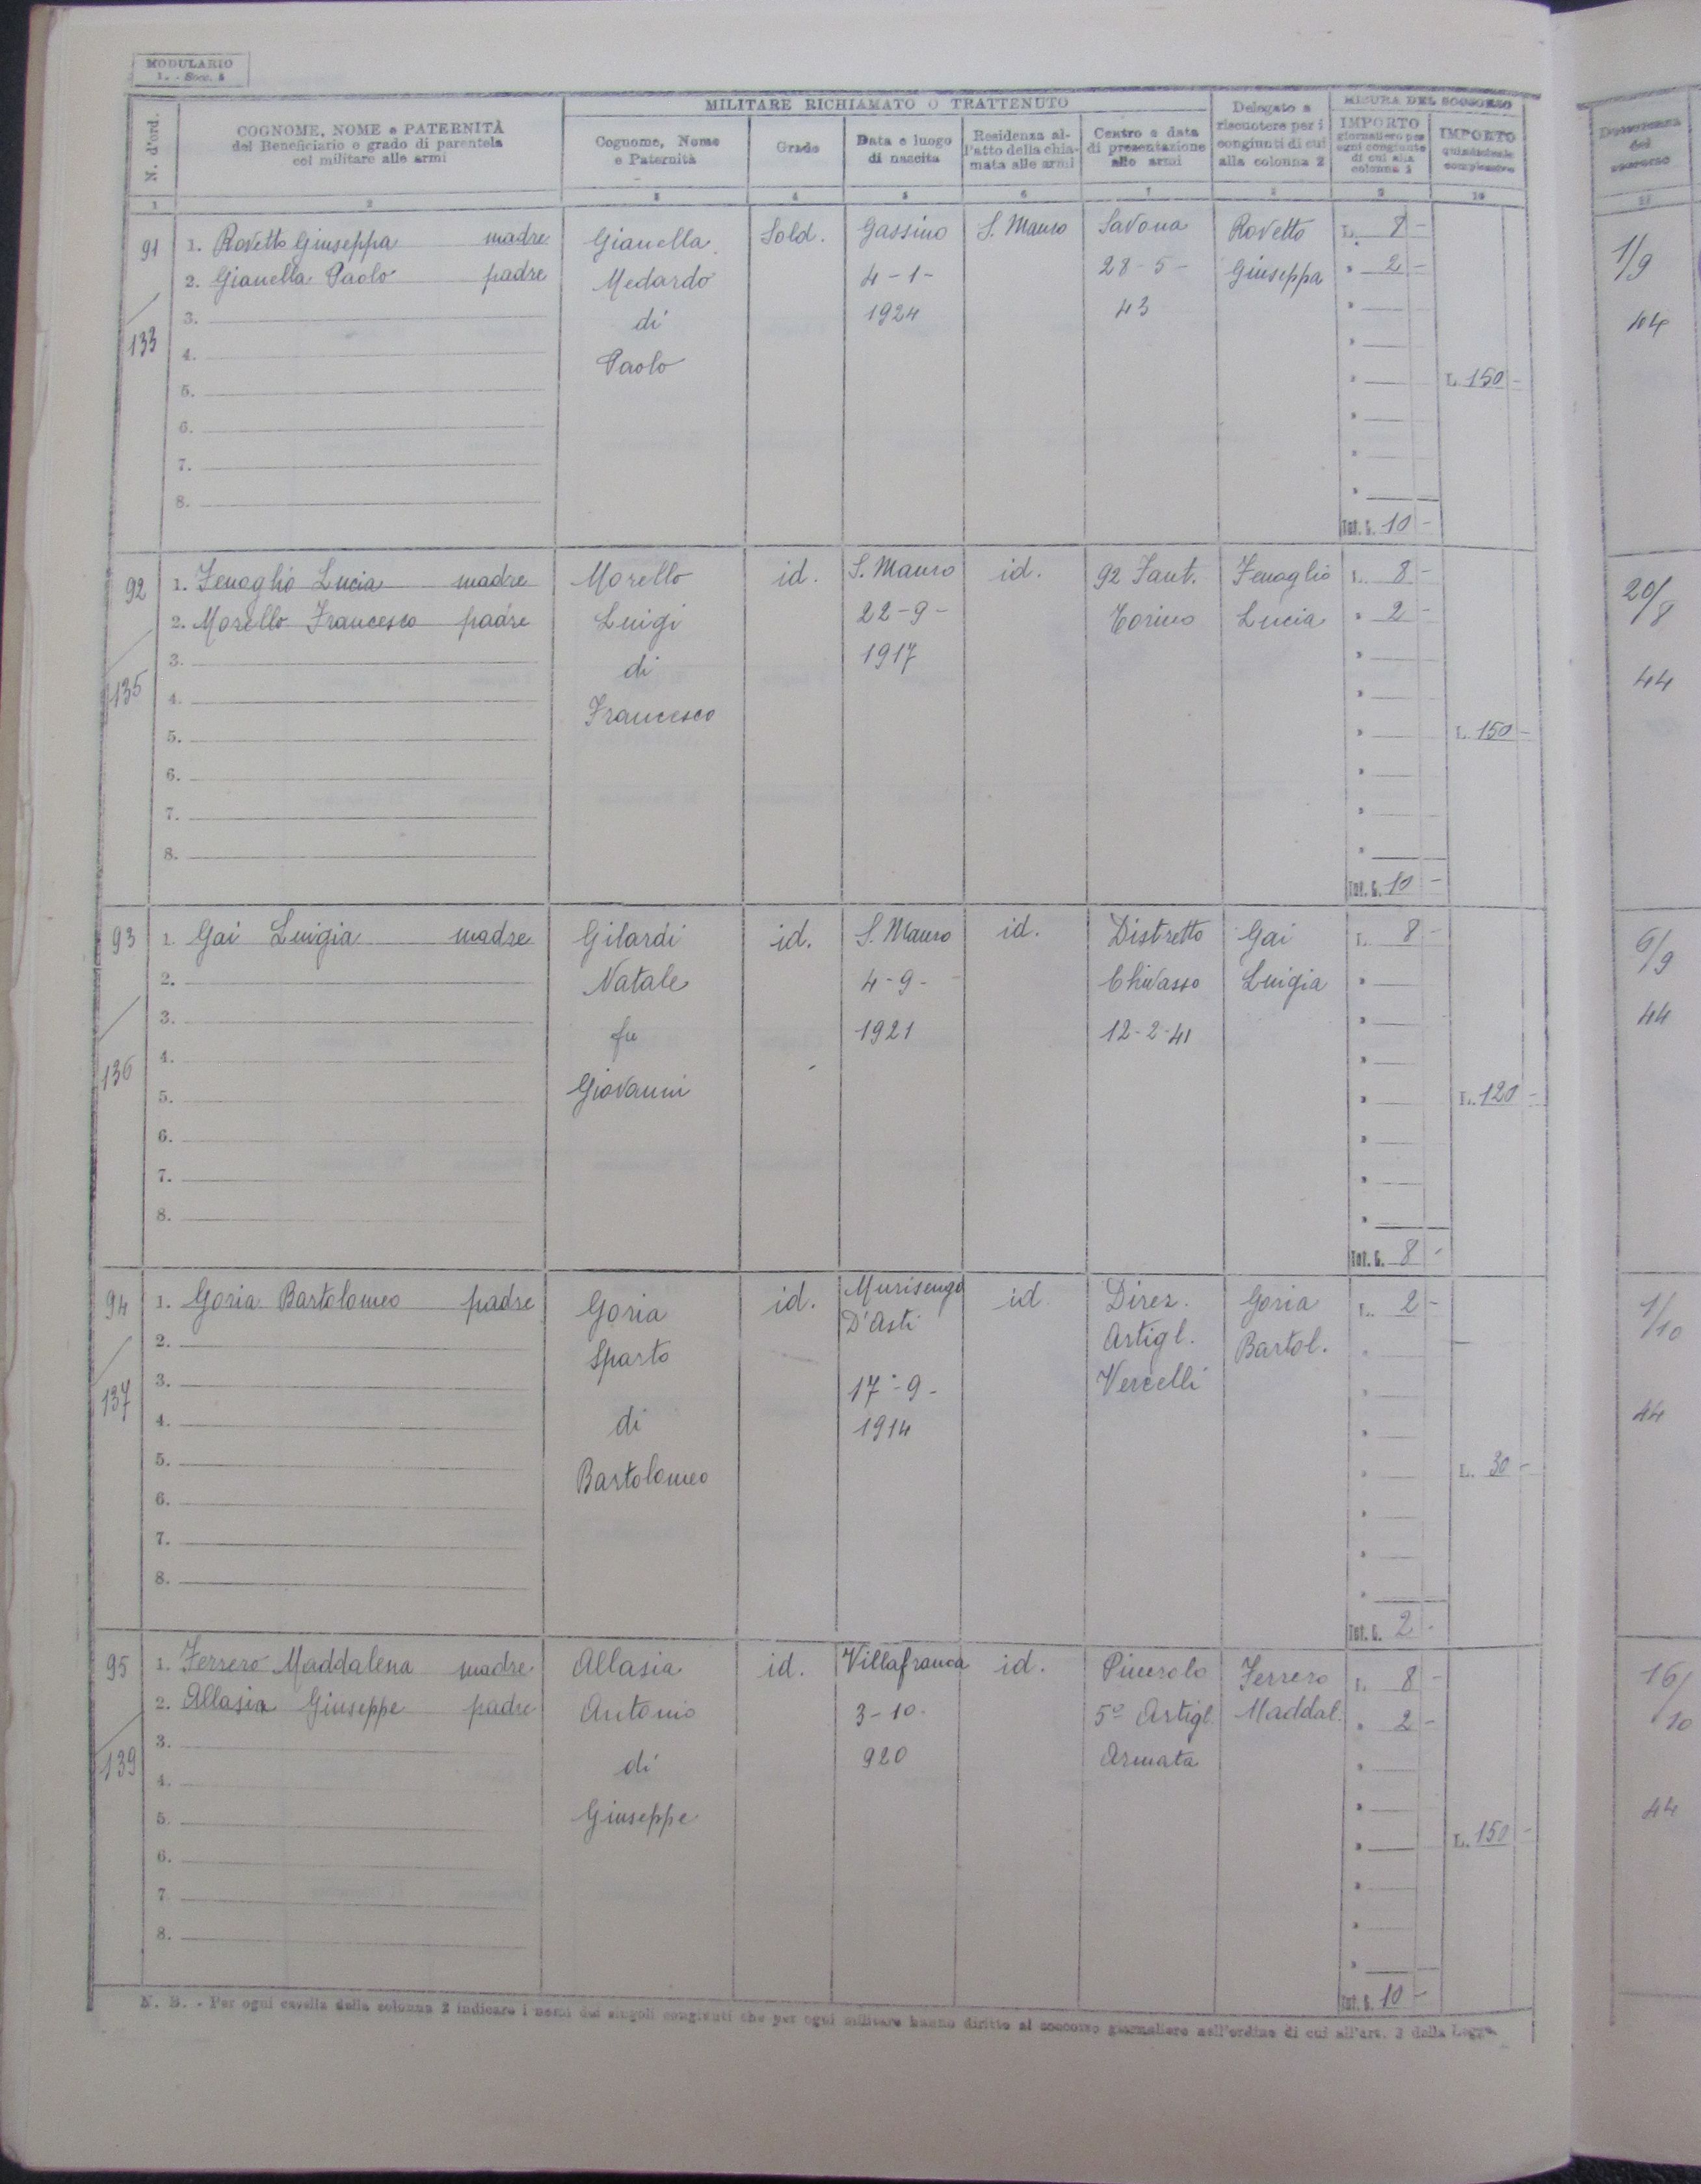 MODULARIO
1. - Socc. 5
N. d'ord.
COGNOME, NOME e PATERNITÀ
del Beneficiario e grado di parentela
col militare alle armi
MILITARE RICHIAMATO O TRATTENUTO
Cognome, Nome
e Paternità
Grado
Data e luogo
di nascita
Residenza al-
l'atto della chia-
mata alle armi
Centro e data
di presentazione
alle armi
Delegato a
riscuotere per i
congiunti di cui
alla colonna 2
MISURA DEL SOCCORSO
IMPORTO
giornaliero per
ogni congiunto
di cui alla
colonna 2
IMPORTO
quindicinale
complessivo
Decorrenza
del
soccorso
1 2 3 4 5 6 7 8 9 10 11
91 / 133
1. Rovetto Giuseppa madre
2. Gianella Paolo padre
3.
4.
5.
6.
7.
8.
Gianella
Medardo
di
Paolo
Sold.
Gassino
4-1-
1924
S. Mauro
Savona
28-5-
43
Rovetto
Giuseppa
L. 8 -
" 2 -
Tot. G. 10 -
L. 150 -
1/9
44
92 / 135
1. Fenoglio Lucia madre
2. Morello Francesco padre
3.
4.
5.
6.
7.
8.
Morello
Luigi
di
Francesco
id.
S. Mauro
22-9-
1917
id.
92 Fant.
Torino
Fenoglio
Lucia
L. 8 -
" 2 -
Tot. G. 10 -
L. 150 -
20/8
44
93 / 136
1. Gai Luigia madre
2.
3.
4.
5.
6.
7.
8.
Gilardi
Natale
fu
Giovanni
id.
S. Mauro
4-9-
1921
id.
Distretto
Chivasso
12-2-41
Gai
Luigia
L. 8 -
Tot. G. 8 -
L. 120 -
6/9
44
94 / 137
1. Goria Bartolomeo padre
2.
3.
4.
5.
6.
7.
8.
Goria
Sparto
di
Bartolomeo
id.
Murisengo
D'Asti
17-9-
1914
id
Direz.
Artigl.
Vercelli
Goria
Bartol.
L. 2 -
Tot. G. 2 -
L. 30 -
1/10
44
95 / 139
1. Ferrero Maddalena madre
2. Allasia Giuseppe padre
3.
4.
5.
6.
7
8.
Allasia
Antonio
di
Giuseppe
id.
Villafranca
3-10-
920
id.
Pinerolo
5º Artigl.
Armata
Ferrero
Maddal.
L. 8 -
" 2 -
Tot. G. 10 -
L. 150 -
16/10
44
N. B. - Per ogni casella della colonna 2 indicare i nomi dei singoli congiunti che per ogni militare hanno diritto al soccorso giornaliero nell'ordine di cui all'art. 3 della Legge.